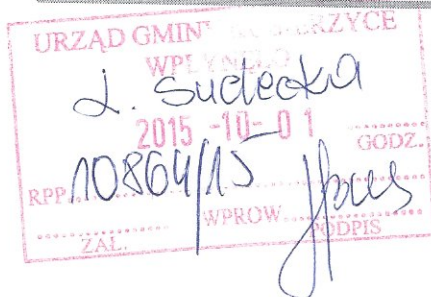 URZĄD GMIN
WPŁYNĘŁO
J. Sudecka
2015 -10- 01
GODZ.
RPP. 10864/15
WPROW.
PODPIS
ZAL.